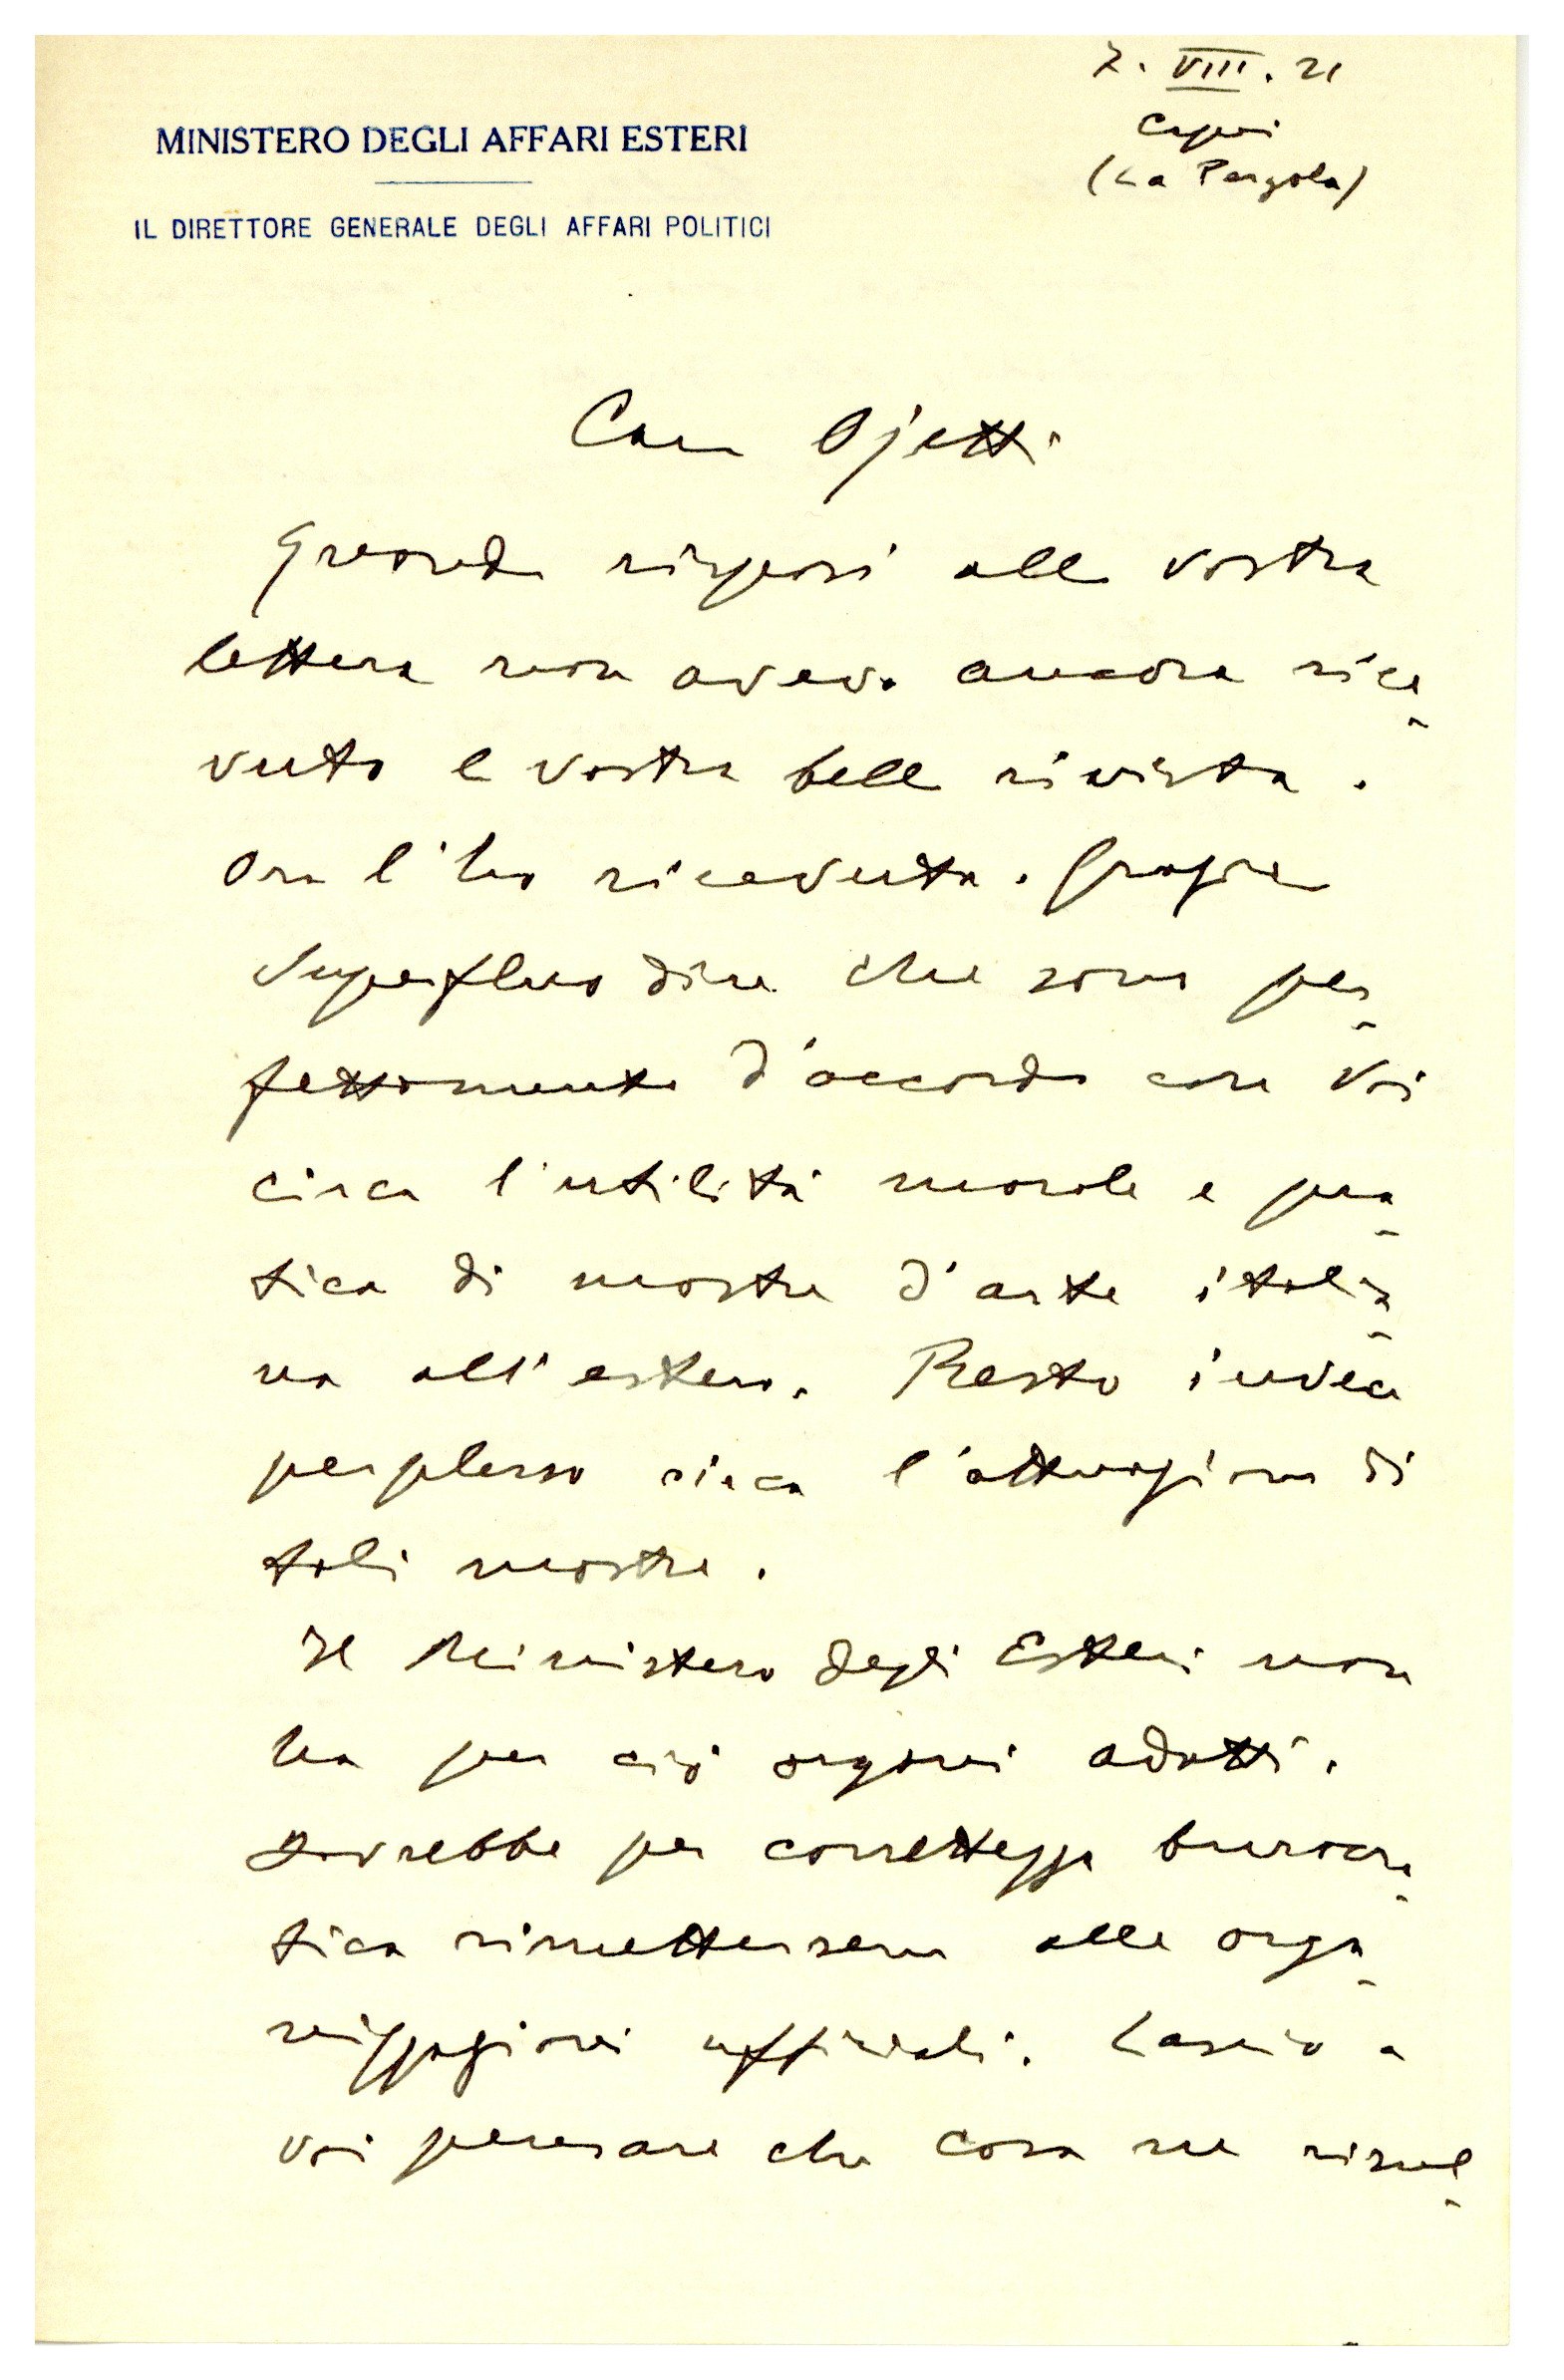 2. VIII. 21
Capri
(La Pergola)
MINISTERO DEGLI AFFARI ESTERI
IL DIRETTORE GENERALE DEGLI AFFARI POLITICI
Caro Ojetti
Quando risposi alla vostra
lettera non avevo ancora rice-
vuto la vostra bella rivista.
Ora l'ho ricevuta. Grazie
Superfluo dire che sono per-
fettamente d'accordo con Voi
circa l'utilità morale e pra-
tica di mostre d'arte italia-
na all'estero. Resto invece
perplesso circa l'attuazione di
tali mostre.
Il Ministero degli Esteri non
ha per ciò organi adatti.
Dovrebbe per correttezza burocra-
tica rimettersene alle orga-
nizzazioni ufficiali. Lascio a
voi pensare che cosa ne risul-